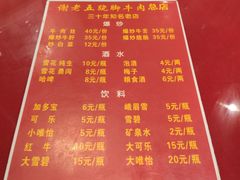 谢老五跷脚牛肉总店
三十年知名老店
爆炒
牛肉丝 40元/份
爆炒牛肝 35元/份
炒白菜 12元/份
酒水
雪花纯生 10元/瓶 泡酒 4元/两
雪花勇闯 8元/瓶 梅子 4元/两
哈啤 8元/瓶 粮食酒 6元/两
饮料
加多宝 6元/瓶 峨眉雪 5元/瓶
可乐 5元/瓶 雪碧 5元/瓶
小唯怡 5元/瓶 矿泉水 2元/瓶
红牛 10元/瓶 大可乐 15元/瓶
大雪碧 15元/瓶 大唯怡 20元/瓶